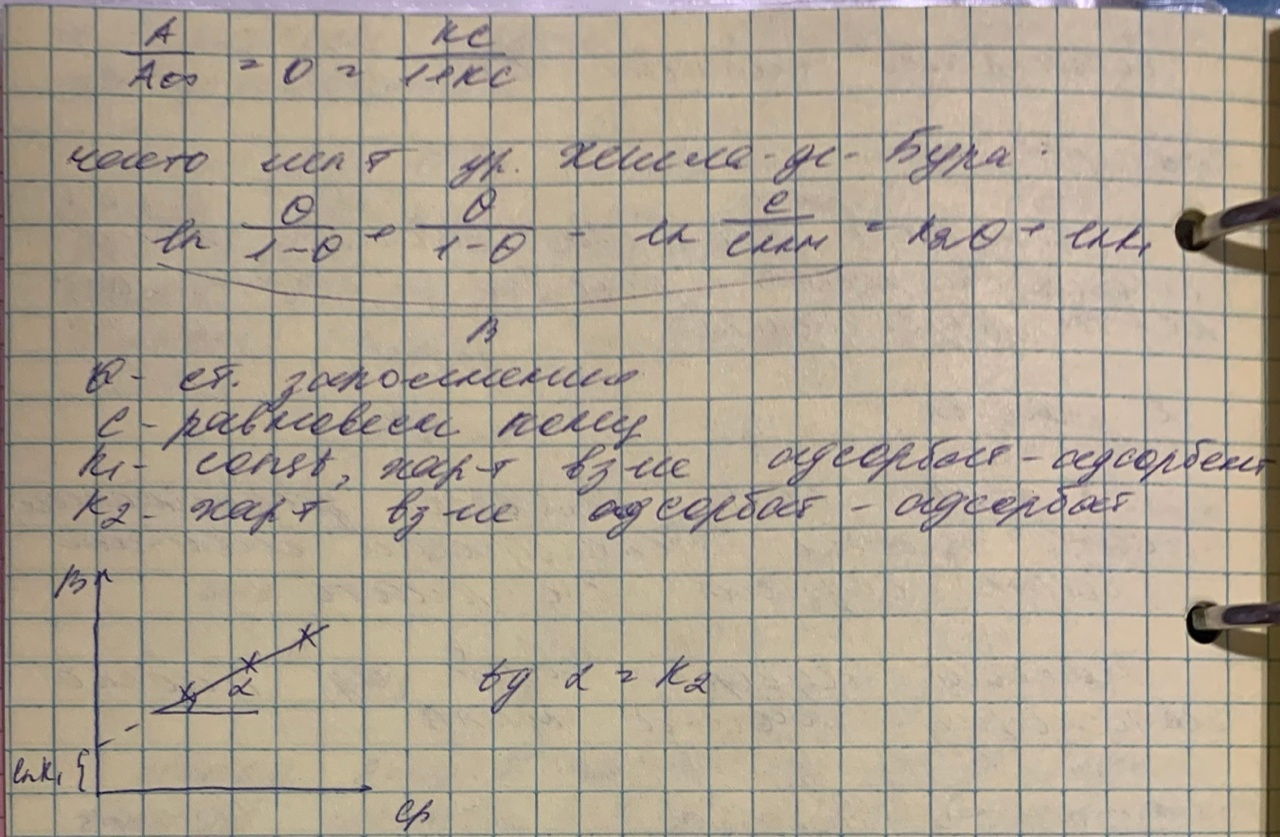 A/A∞ = θ = KC/1+KC
часто исп-т ур. Хилла-де-Бура:
ln θ/1-θ + θ/1-θ - ln C/Cккм = K₂θ + lnK₁
B
θ - ст. заполнения
C - равновесн конц
K₁ - const, хар-т вз-ие адсорбат-адсорбент
K₂ - хар-т вз-ие адсорбат - адсорбат
B
α
tg α = K₂
lnK₁
Cр